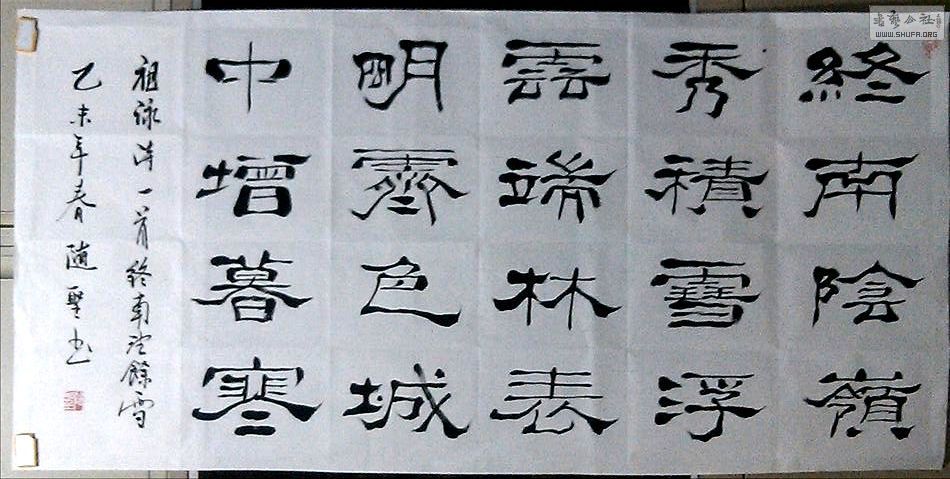 終南陰嶺
秀積雪浮
雲端林表
明霽色城
中增暮寒
祖詠诗一首終南望餘雪
乙未年春随聖书
书艺公社
WWW.SHUFA.ORG